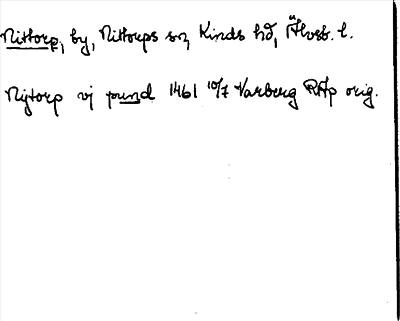 Nittorp, by, Nittorps sn, Kinds hd, Älvsb. l.
Nijtorp vj pund 1461 10/7 Varberg RAp orig.